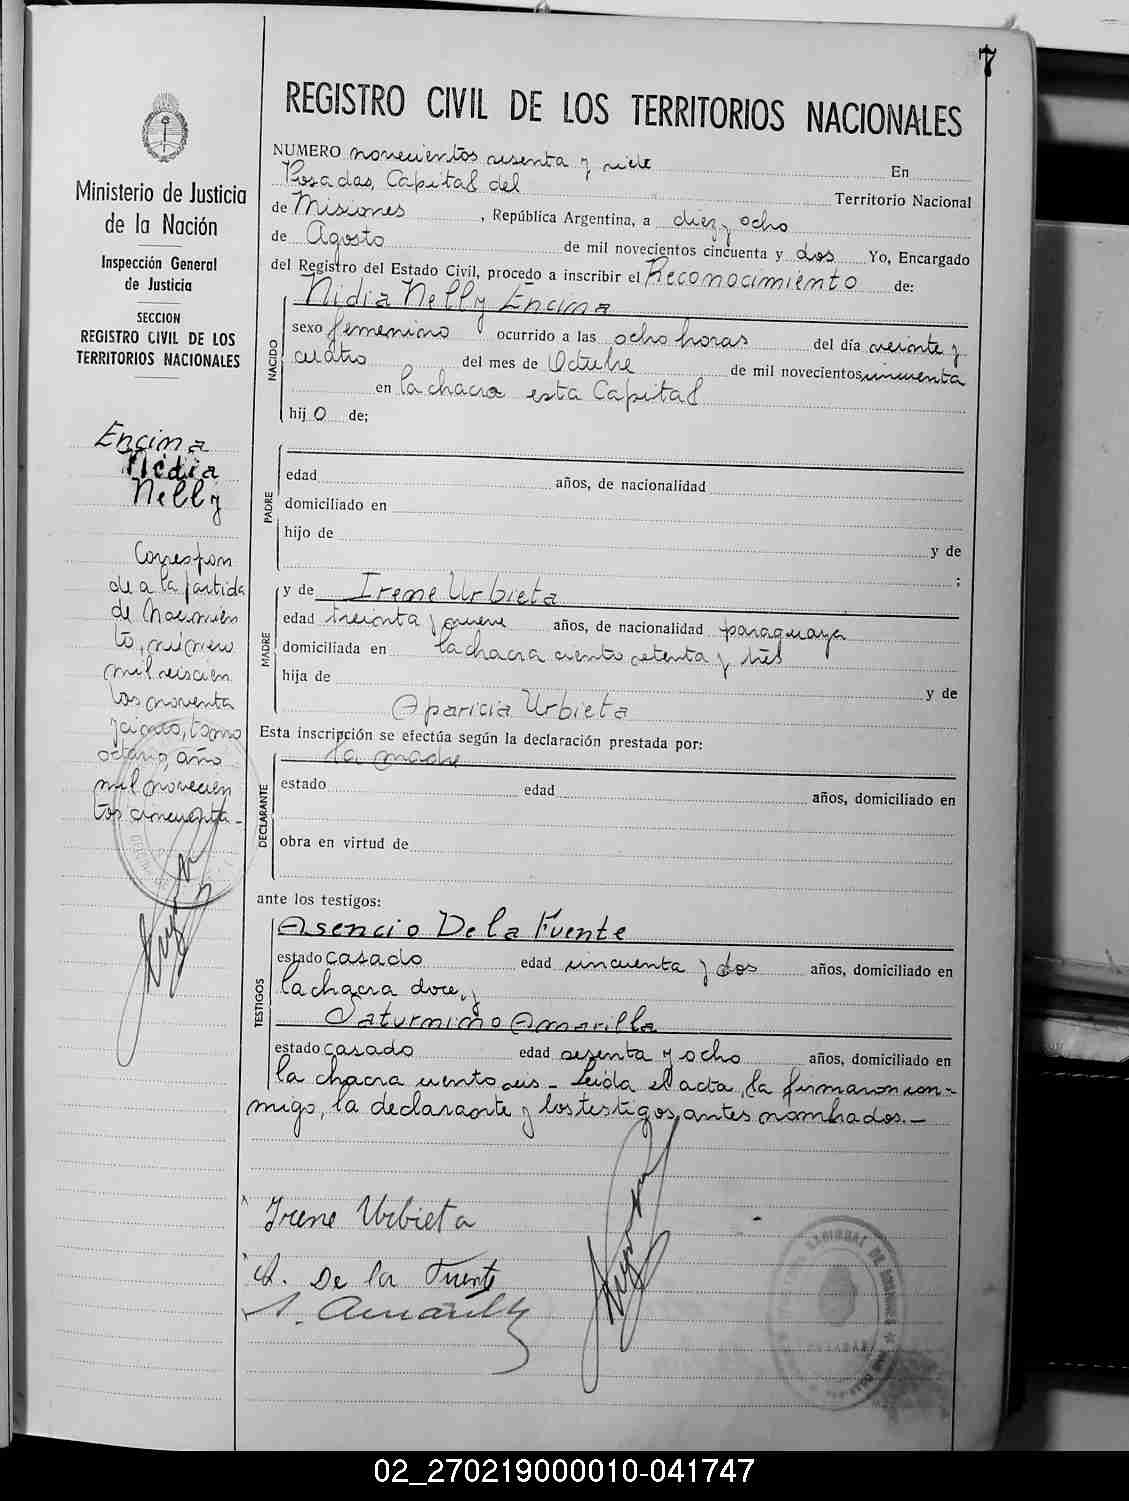 7
REGISTRO CIVIL DE LOS TERRITORIOS NACIONALES
Ministerio de Justicia
de la Nación
Inspección General
de Justicia
SECCION
REGISTRO CIVIL DE LOS
TERRITORIOS NACIONALES
Encina
Nidia
Nelly
Correspon
de a la partida
de Nacimien
to, número
mil seiscien
tos noventa
y cinco, tomo
octavo, año
mil novecien
tos cincuenta -
NUMERO novecientos sesenta y siete En
Posadas, Capital del Territorio Nacional
de Misiones, República Argentina, a diez y ocho
de Agosto de mil novecientos cincuenta y dos Yo, Encargado
del Registro del Estado Civil, procedo a inscribir el Reconocimiento de:
Nidia Nelly Encina
NACIDO
sexo femenino ocurrido a las ocho horas del día veinte y
cuatro del mes de Octubre de mil novecientos cincuenta
en la chacra esta Capital
hij o de;
PADRE
edad años, de nacionalidad
domiciliado en
hijo de y de
;
MADRE
y de Irene Urbieta
edad treinta y nueve años, de nacionalidad paraguaya
domiciliada en la chacra ciento setenta y tres
hija de y de
Aparicia Urbieta
Esta inscripción se efectúa según la declaración prestada por:
la madre
DECLARANTE
estado edad años, domiciliado en
obra en virtud de
ante los testigos:
TESTIGOS
Asencio De la Fuente
estado casado edad cincuenta y dos años, domiciliado en
la chacra doce, y
Saturnino Amarilla
estado casado edad sesenta y ocho años, domiciliado en
la chacra ciento seis - Leida el acta, la firmaron con-
migo, la declarante y los testigos, antes nombrados. -
Irene Urbieta
A. De la Fuente
S. Amarilla
02_270219000010-041747